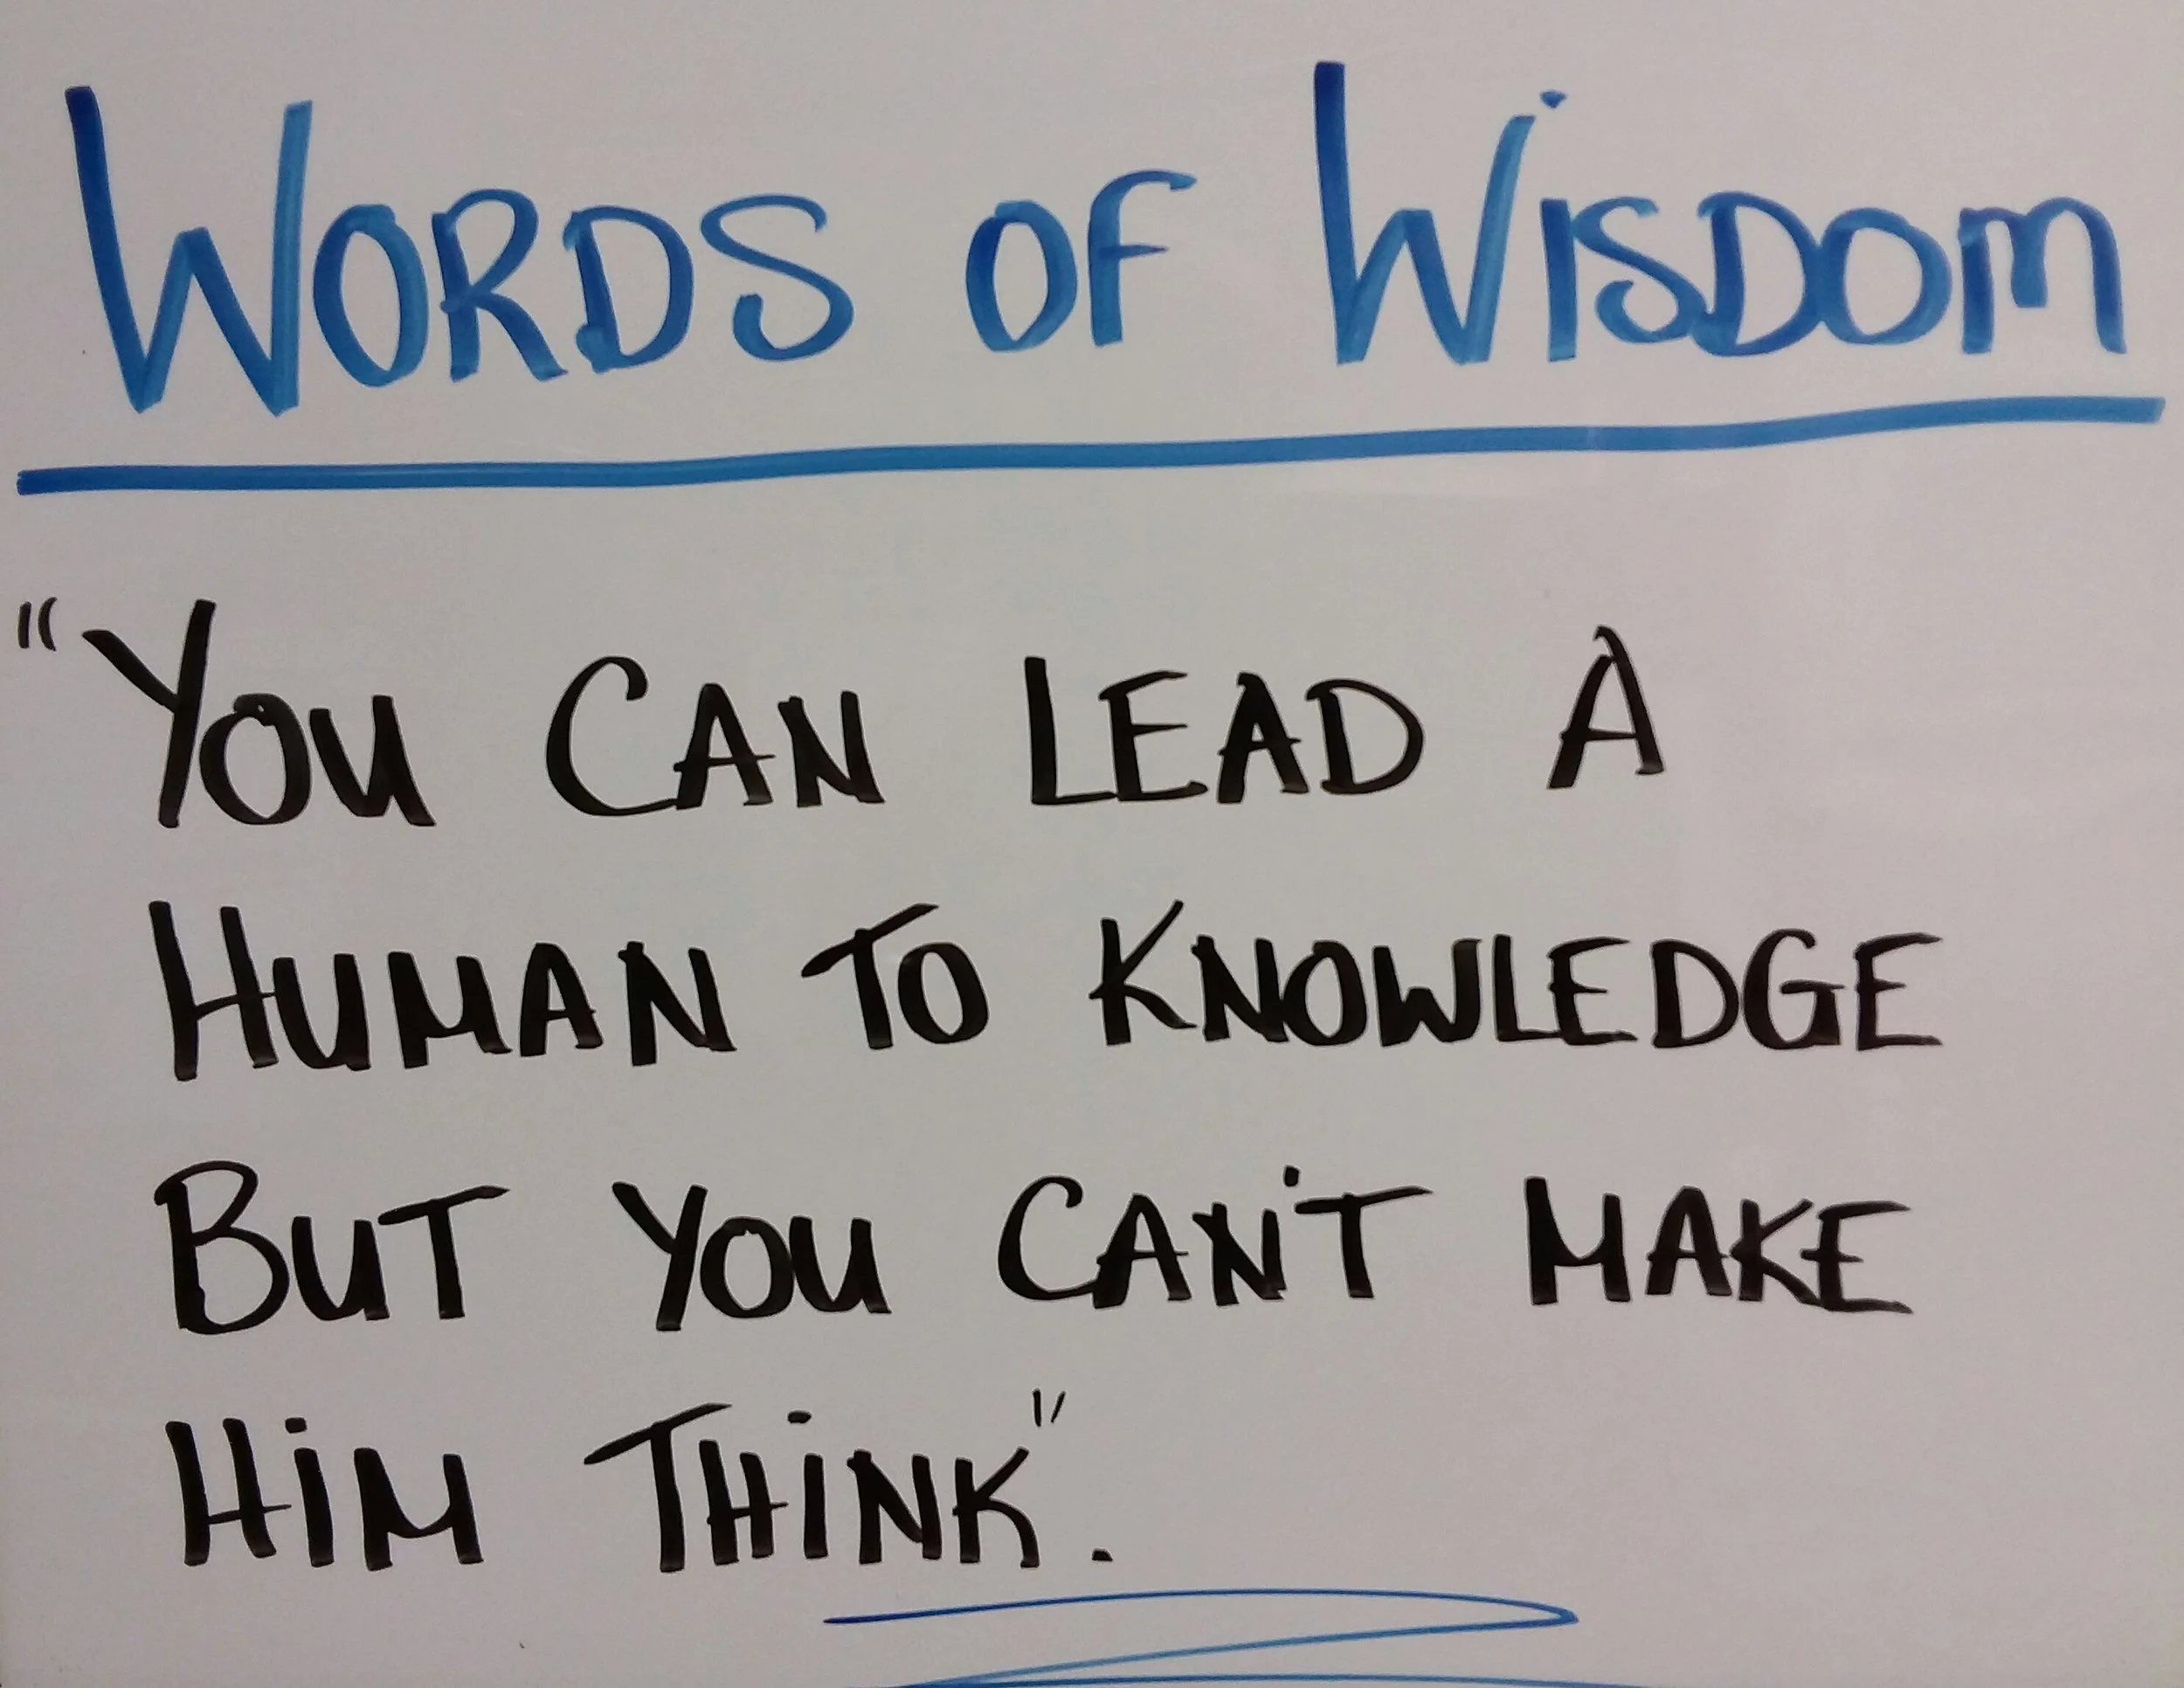 WORDS OF WiSDOM
"YOU CAN LEAD A
HUMAN TO KNOWLEDGE
BUT YOU CAN'T MAKE
HiM THiNK".